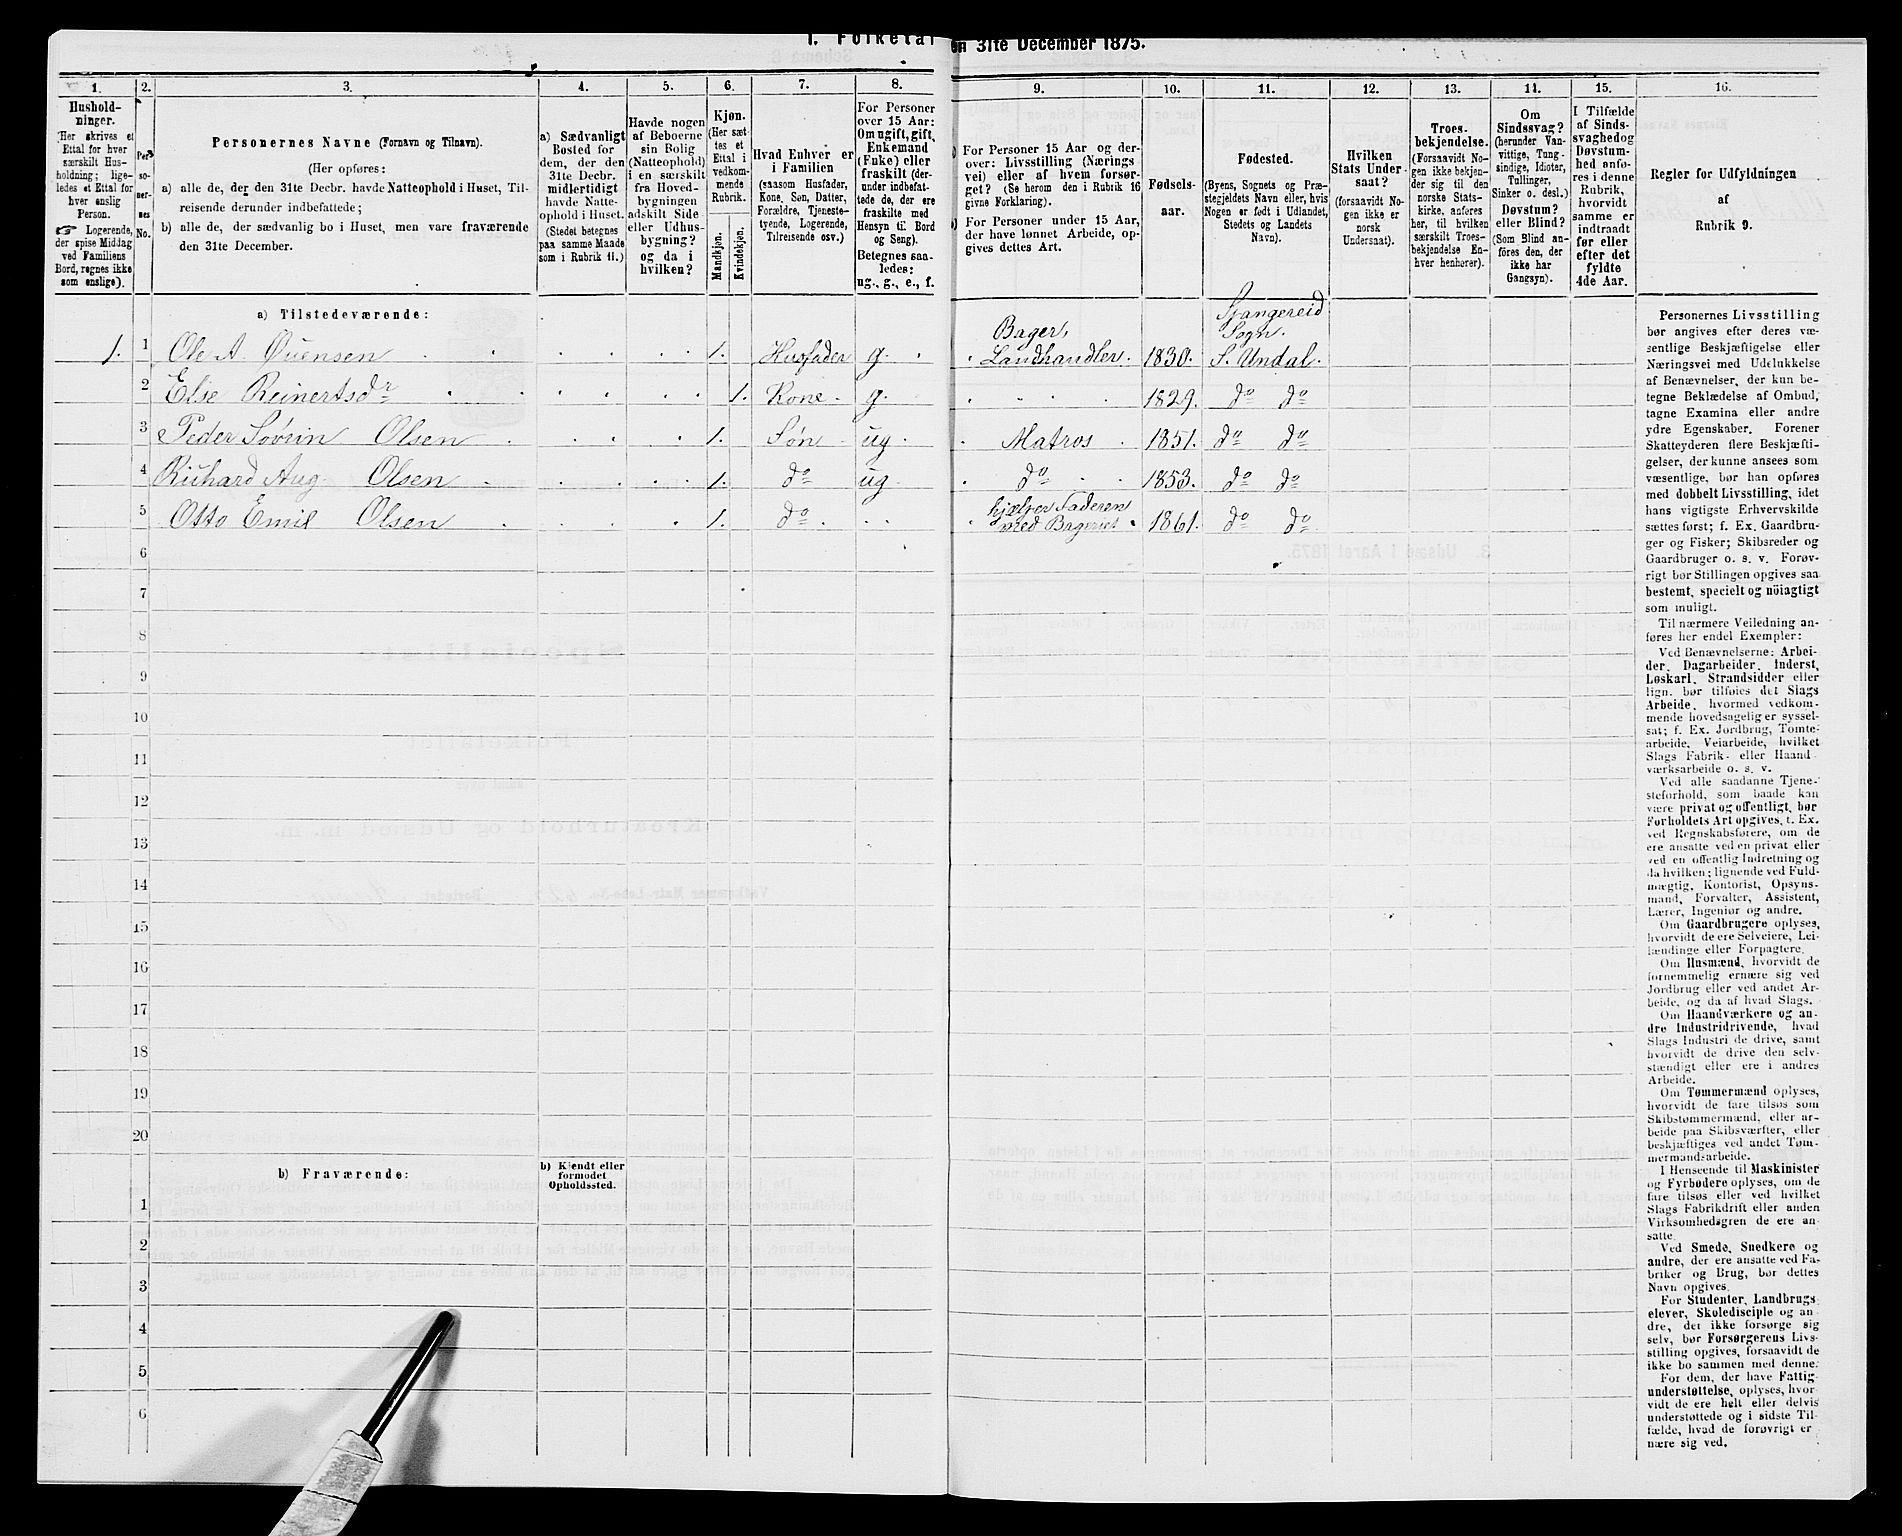 1. Folketæl
en 31te December 1875.
1.
2.
3.
4.
5.
6.
7.
8.
9.
10.
11.
12.
13.
14.
15.
16.
Hushold-
ninger.
(Her skrives et
Ettal for hver
særskilt Hus-
holdning; lige-
ledes et Ettal for
hver enslig
Person.
☞ Logerende,
der spise Middag
ved Familiens
Bord, regnes ikke
som enslige).
Per-
so-
ner-
nes
No.
Personernes Navne (Fornavn og Tilnavn).
(Her opføres:
a) alle de, der den 31te Decbr. havde Natteophold i Huset, Til-
reisende derunder indbefattede;
b) alle de, der sædvanlig bo i Huset, men vare fraværende
den 31te December.
a) Sædvanligt
Bosted for
dem, der den
31te Decbr.
midlertidigt
havde Natte-
ophold i Huset.
(Stedet betegnes
paa samme Maade
som i Rubrik 11.)
Havde nogen
af Beboerne
sin Bolig
(Natteophold)
i en særskilt
fra Hoved-
bygningen
adskilt Side-
eller Udhus-
bygning?
og da i
hvilken?
Kjøn.
(Her sæt-
tes et
Ettal i
vedkom-
mende
Rubrik.
Mandkjøn.
Kvindekjøn.
Hvad Enhver er
i Familien
(saasom Husfader,
Kone, Søn, Datter,
Forældre, Tjeneste-
tyende, Logerende,
Tilreisende osv.)
For Personer
over 15 Aar:
Om ugift, gift,
Enkemand
(Enke) eller
fraskilt (der-
under indbefat-
tede de, der ere
fraskilte med
Hensyn til Bord
og Seng).
Betegnes saa-
ledes:
ug., g., e., f.
a) For Personer 15 Aar og der-
over: Livsstilling (Nærings
vei) eller af hvem forsør-
get? (Se herom den i Rubrik 16
givne Forklaring).
b) For Personer under 15 Aar,
der have lønnet Arbeide, op-
gives dettes Art.
Fødsels-
aar.
Fødested.
(Byens, Sognets og Præ-
stegjeldets Navn eller, hvis
Nogen er født i Udlandet,
Stedets og Landets
Navn).
Hvilken
Stats Under-
saat?
(forsaavidt No-
gen ikke er
norsk
Undersaat).
Troes-
bekjendelse.
(Forsaavidt No-
gen ikke bekjen-
der sig til den
norske Stats-
kirke, anføres
her, til hvilken
særskilt Troes-
bekjendelse En-
hver henhører).
Om
Sindssvag?
(herunder Van-
vittige, Tung-
sindige, Idioter,
Tullinger,
Sinker o. desl.)
Døvstum?
eller Blind?
(Som Blind an-
føres den, der
ikke har
Gangsyn).
I Tilfælde
af Sinds-
svaghed og
Døvstum-
hed anfø-
res i denne
Rubrik,
hvorvidt
samme er
indtraadt
før eller
efter det
fyldte
4de Aar.
Regler for Udfyldningen
af
Rubrik 9.
a) Tilstedeværende:
1. 1 Ole A. Øuensen 1. Husfader g. Bager, Landhandler. 1830. Spangereid Sogn. S. Undal.
2 Else Reinertsdr 1. Kone. g. 1829. do do
3 Peder Søvrin Olsen 1. Søn ug. Matros 1851. do do
4 Richard Aug. Olsen 1. do ug. do 1853. do do
5 Otto Emil Olsen 1. do hjælper Faderen med Bageriet 1861. do do
6
7
8
9
10
11
12
13
14
15
16
17
18
19
20
b) Fraværende:
b) Kjendt eller
formodet
Opholdssted.
1
2
3
4
5
6
Personernes Livsstilling
bør angives efter deres væ-
sentlige Beskjæftigelse eller
Næringsvei med Udelukkelse
af Benævnelser, der kun be-
tegne Beklædelse af Ombud,
tagne Examina eller andre
ydre Egenskaber. Forener
Skatteyderen flere Beskjæfti-
gelser, der kunne ansees som
væsentlige, bør han opføres
med dobbelt Livsstilling, idet
hans vigtigste Erhvervskilde
sættes først; f. Ex. Gaardbru-
ger og Fisker; Skibsreder og
Gaardbruger o. s. v. Forøv-
rigt bør Stillingen opgives saa
bestemt, specielt og nöiagtigt
som muligt.
Til nærmere Veiledning an-
føres her endel Exempler:
Ved Benævnelserne: Arbei-
der, Dagarbeider, Inderst,
Løskarl, Strandsidder eller
lign. bør tilføies det Slags
Arbeide, hvormed vedkom-
mende hovedsagelig er syssel-
sat; f. Ex. Jordbrug, Tomte-
arbeide, Veiarbeide, hvilket
Slags Fabrik- eller Haand-
værksarbeide o. s. v.
Ved alle saadanne Tjene-
steforhold, som baade kan
være privat og offentligt, bør
Forholdets Art opgives, t. Ex.
ved Regnskabsførere, om de
ere ansatte ved en privat eller
ved en offentlig Indretning og
da hvilken; lignende ved Fuld-
mægtig, Kontorist, Opsyns-
mand, Forvalter, Assistent,
Lærer, Ingeniør og andre.
Om Gaardbrugere oplyses,
hvorvidt de ere Selveiere, Lei-
lændinge eller Forpagtere.
Om Husmænd, hvorvidt de
fornemmelig ernære sig ved
Jordbrug eller ved andet Ar-
beide, og da af hvad Slags.
Om Haandværkere og an-
dre Industridrivende, hvad
Slags Industri de drive, samt
hvorvidt de drive den selv-
stændigt eller ere i andres
Arbeide.
Om Tømmermænd oplyses,
hvorvidt de fare tilsøs som
Skibstømmermænd, eller ar-
beide paa Skibsværfter, eller
beskjæftiges ved andet Tøm-
mermandsarbeide.
I Henseende til Maskinister
og Fyrbødere oplyses, om de
fare tilsøs eller ved hvilket
Slags Fabrikdrift eller anden
Virksomhedsgren de ere an-
satte.
Ved Smede, Snedkere og
andre, der ere ansatte ved Fa-
briker og Brug, bør dettes
Navn opgives.
For Studenter, Landbrugs
elever, Skoledisciple og an-
dre, der ikke forsørge sig
selv, bør Forsørgerens Livs-
stilling opgives, forsaavidt de
ikke bo sammen med denne.
For dem, der have Fattig
understøttelse, oplyses, hvor-
vidt de ere helt eller delvis
understøttede og i sidste Til-
fælde, hvad de forøvrigt er-
nære sig ved.